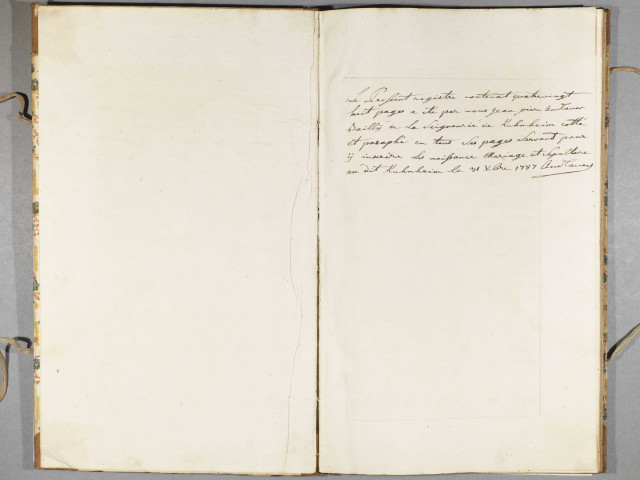 Le Present registre contenant quatre vingt
huit pages a été par nous jean pierre
Bailly de La Seigneurie de Kuhnheim cotté
et paraphé en tout Ses pages Servant pour
y inscrire Les naissance Mariage et Sepulture
au dit Kuhnheim le 31 Xbre 1787